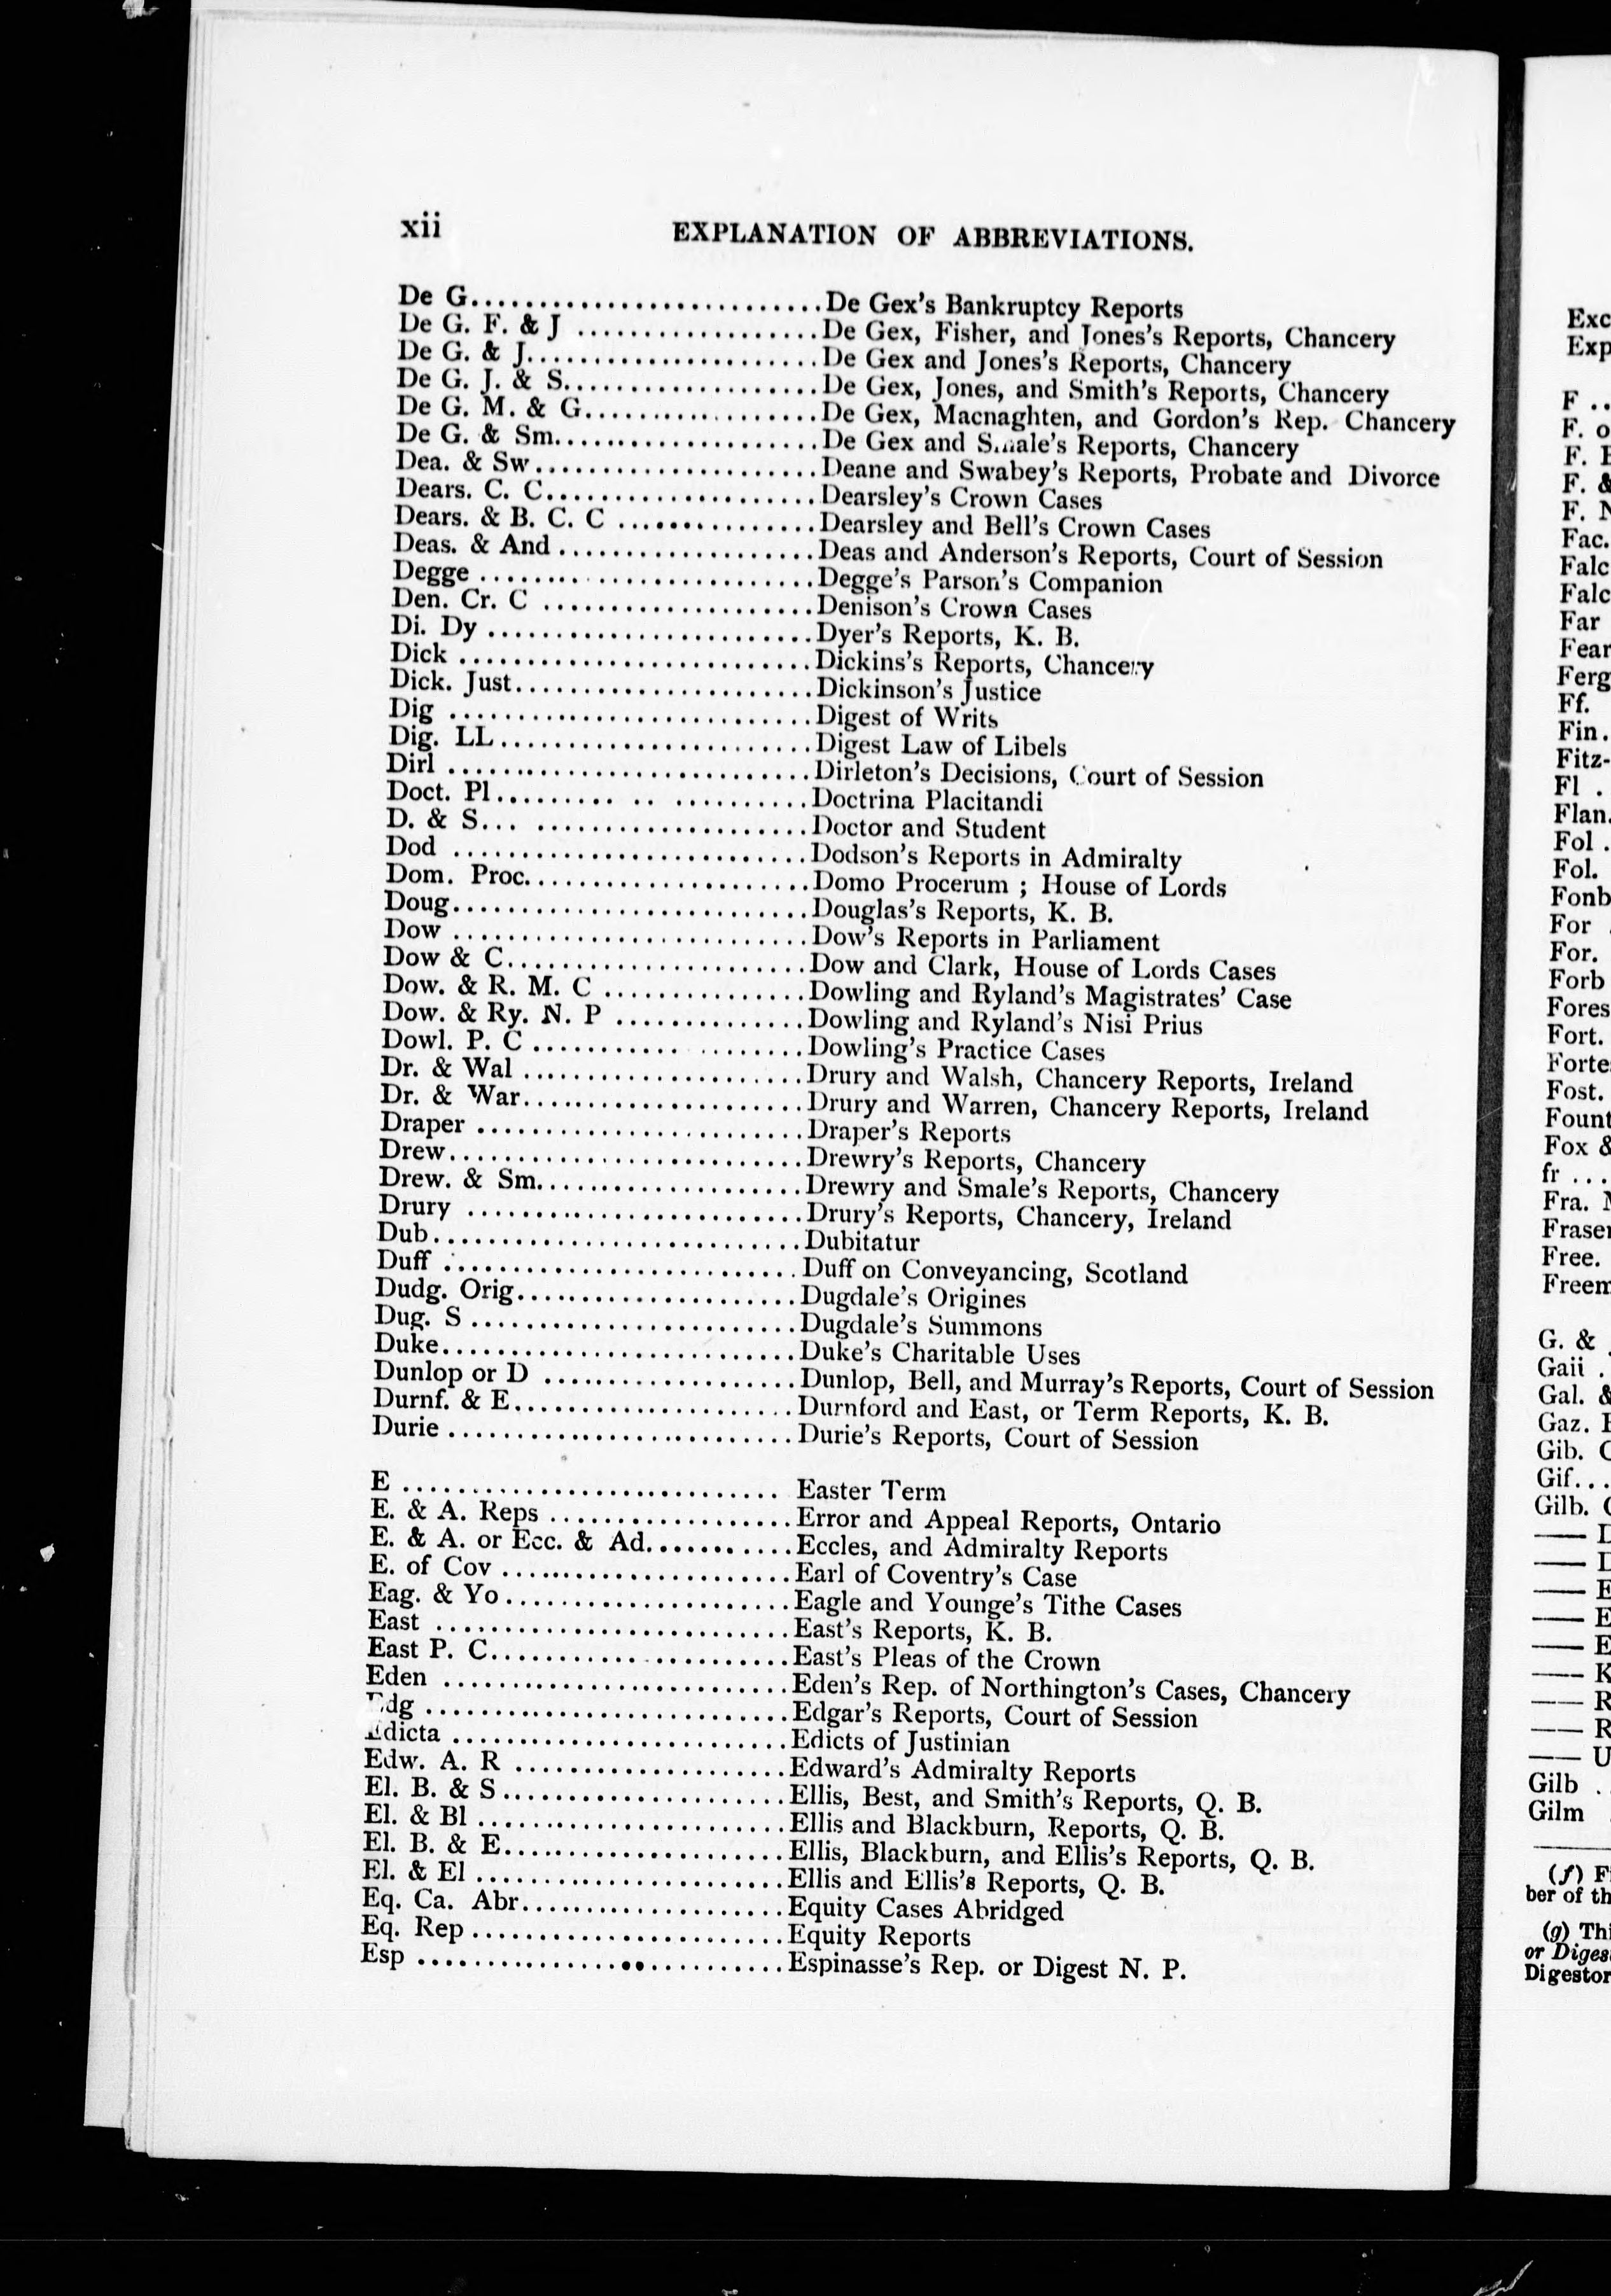 xii EXPLANATION OF ABBREVIATIONS.
De G...........................De Gex's Bankruptcy Reports
De G. F. & J ...................De Gex, Fisher, and Jones's Reports, Chancery
De G. & J.......................De Gex and Jones's Reports, Chancery
De G. J. & S....................De Gex, Jones, and Smith's Reports, Chancery
De G. M. & G..................De Gex, Macnaghten, and Gordon's Rep. Chancery
De G. & Sm.....................De Gex and Smale's Reports, Chancery
Dea. & Sw......................Deane and Swabey's Reports, Probate and Divorce
Dears. C. C.....................Dearsley's Crown Cases
Dears. & B. C. C ...............Dearsley and Bell's Crown Cases
Deas. & And ...................Deas and Anderson's Reports, Court of Session
Degge .........................Degge's Parson's Companion
Den. Cr. C .....................Denison's Crown Cases
Di. Dy .........................Dyer's Reports, K. B.
Dick ...........................Dickins's Reports, Chancery
Dick. Just.......................Dickinson's Justice
Dig ............................Digest of Writs
Dig. LL........................Digest Law of Libels
Dirl ............................Dirleton's Decisions, Court of Session
Doct. Pl......... .. ..........Doctrina Placitandi
D. & S... .....................Doctor and Student
Dod ...........................Dodson's Reports in Admiralty
Dom. Proc......................Domo Procerum ; House of Lords
Doug...........................Douglas's Reports, K. B.
Dow ...........................Dow's Reports in Parliament
Dow & C.......................Dow and Clark, House of Lords Cases
Dow. & R. M. C ................Dowling and Ryland's Magistrates' Case
Dow. & Ry. N. P ...............Dowling and Ryland's Nisi Prius
Dowl. P. C ........... ........Dowling's Practice Cases
Dr. & Wal ......................Drury and Walsh, Chancery Reports, Ireland
Dr. & War......................Drury and Warren, Chancery Reports, Ireland
Draper .........................Draper's Reports
Drew...........................Drewry's Reports, Chancery
Drew. & Sm.....................Drewry and Smale's Reports, Chancery
Drury ..........................Drury's Reports, Chancery, Ireland
Dub............................Dubitatur
Duff ...........................Duff on Conveyancing, Scotland
Dudg. Orig.....................Dugdale's Origines
Dug. S .........................Dugdale's Summons
Duke...........................Duke's Charitable Uses
Dunlop or D ...................Dunlop, Bell, and Murray's Reports, Court of Session
Durnf. & E......................Durnford and East, or Term Reports, K. B.
Durie ..........................Durie's Reports, Court of Session
E ............................. Easter Term
E. & A. Reps ...................Error and Appeal Reports, Ontario
E. & A. or Ecc. & Ad...........Eccles, and Admiralty Reports
E. of Cov ......................Earl of Coventry's Case
Eag. & Yo......................Eagle and Younge's Tithe Cases
East ...........................East's Reports, K. B.
East P. C.......................East's Pleas of the Crown
Eden ..........................Eden's Rep. of Northington's Cases, Chancery
Edg ............................Edgar's Reports, Court of Session
Edicta .........................Edicts of Justinian
Edw. A. R .....................Edward's Admiralty Reports
El. B. & S......................Ellis, Best, and Smith's Reports, Q. B.
El. & Bl .......................Ellis and Blackburn, Reports, Q. B.
El. B. & E......................Ellis, Blackburn, and Ellis's Reports, Q. B.
El. & El ........................Ellis and Ellis's Reports, Q. B.
Eq. Ca. Abr....................Equity Cases Abridged
Eq. Rep ........................Equity Reports
Esp ............................Espinasse's Rep. or Digest N. P.
Exc
Exp
F ..
F. o
F.
F. &
F.
Fac.
Falc
Falc
Far
Fear
Ferg
Ff.
Fin.
Fitz-
Fl .
Flan.
Fol .
Fol.
Fonb
For
For.
Forb
Fores
Fort.
Forte
Fost.
Fount
Fox &
fr ...
Fra.
Fraser
Free.
Freem
G. &
Gaii .
Gal. &
Gaz.
Gib.
Gif...
Gilb.
——
——
—— E
—— E
—— E
—— K
—— R
—— R
—— U
Gilb .
Gilm
(f) F
ber of th
(g) Thi
or Diges
Digestor